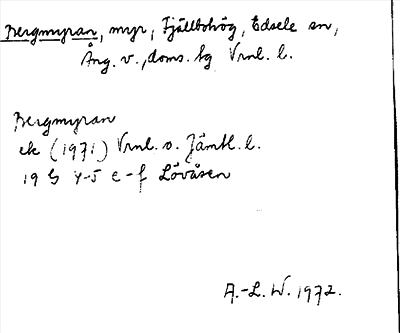 Bergmyran, myr, Fjällbohög, Edsele sn,
Ång. v., doms. hg Vrnl. l.
Bergmyran
ek (1971) Vrnl. o. Jämtl. l.
19 G 4-5 e-f Lövåsen
A.-L. W. 1972.